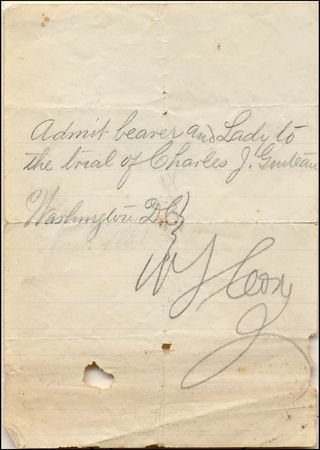 Admit bearer and Lady to
the trial of Charles J. Guiteau
Washington DC}
W S Cox